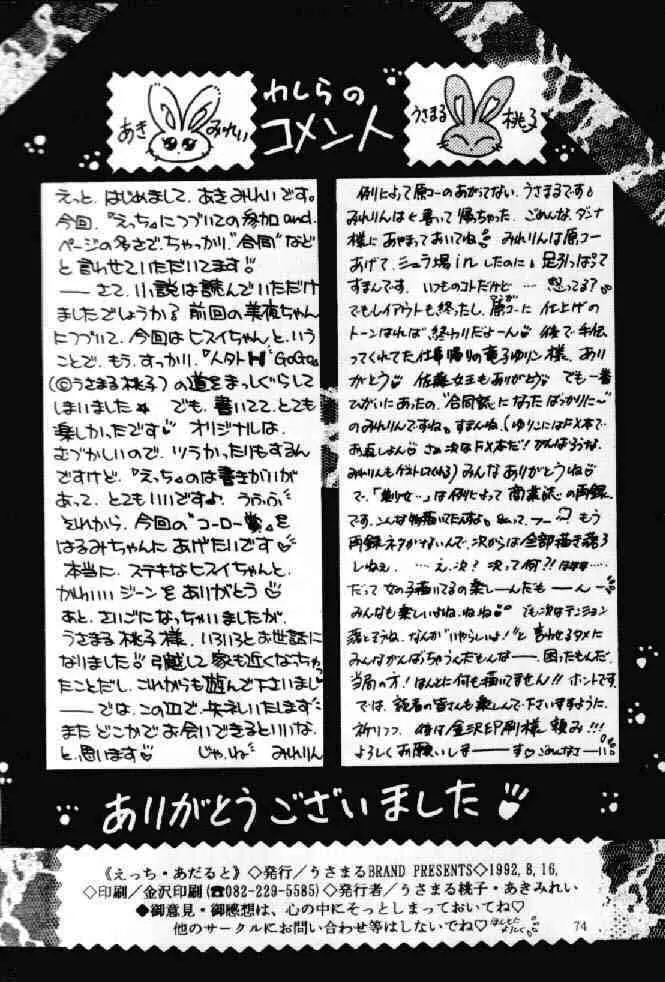 わしらの
コメント
あき みれい
うさまる 桃子
えっと、はじめまして、あきみれいです。
今回、『えっち』につづいての参加and、
ページの多さで、ちゃっかり、"合同"など
と言わせていただいてます!!
——さて、小説は読んでいただけ
ましたでしょうか?前回の美夜ちゃん
につづいて、今回はヒスイちゃん、という
ことで、もう、すっかり、
(©うさまる桃子)の道をまっしぐらして
しまいました★ でも、書いてて、とても
楽しかったです♡ オリジナルは、
むづかしいので、ツラかったりもするん
ですけど、『えっち』のは書きがいが
あって、とてもいいです♪ うふふ
それから、今回の"コーロー賞"を
はるみちゃんにあげたいです♡
本当に、ステキなヒスイちゃんと、
かわいいジーンをありがとう♡
あと、さいごになっちゃいましたが、
うさまる桃子様、いろいろとお世話に
なりました♡引越して家も近くなっちゃっ
たことだし、これからも遊んで下さいまし
——では、この辺で、失礼いたします
またどこかでお会いできるといいな、
と、思います♡ じゃ、ね みれりん
例によって原コーのあがってない、うさまるです
みれりんは書いて帰ちゃった、ごめんな、ダンナ
様にあやまっておいてね♡ みれりんは原コー
あげて、シュラ場inしたのに足引っぱって
すまんです。いつものコトだけど…怒ってる?
でもレイアウトも終ったし、原コーに仕上げの
トーンはれば、終わりだよーん♡ 後で手伝
ってくれてた仕事帰りの竜子ゆリン様、あり
がとう♡ 佐藤女王もありがとう♡ でも一番
ひがいにあったの、"合同誌"になったばっかりに〜
のみれりんですね。すまんね、(ゆりこにはFX本で
お返しよん♡ さぁ次はFX本だ!がんばろうな、
みれりんもゲストロくれる)みんなありがとうね♡
で、「女…」は例によって商業誌の再録
です、こんな物描いてたんすよ。 もう
再録ネタがないんで、次からは全部描き落ろ
しねぇ、 …え、次!次って何?!
だって女の子描いてるの楽しーんだもーん
みんなも楽しいよね、ねね♡ でも次はテンション
落とそうね、なんか"いやらしいよ!"と言わせるタメに
みんながんばっちゃうんだもんな——困ったもんだ、
当局の方!ほんとに何も描いてません!!ホントです。
では、読者の皆さんも楽しんで下さいますように、
祈りつつ、後は金沢印刷様頼み!!!
よろしくお願いしま———す♡ごめんなさーい
ありがとうございました♡
《えっち・あだると》◇発行/うさまるBRAND PRESENTS◇1992,8,16,
◇印刷/金沢印刷(☎082-229-5585)◇発行者/うさまる桃子・あきみれい
●御意見・御感想は、心の中にそっとしまっておいてね♡
他のサークルにお問い合わせ等はしないでね♡
74